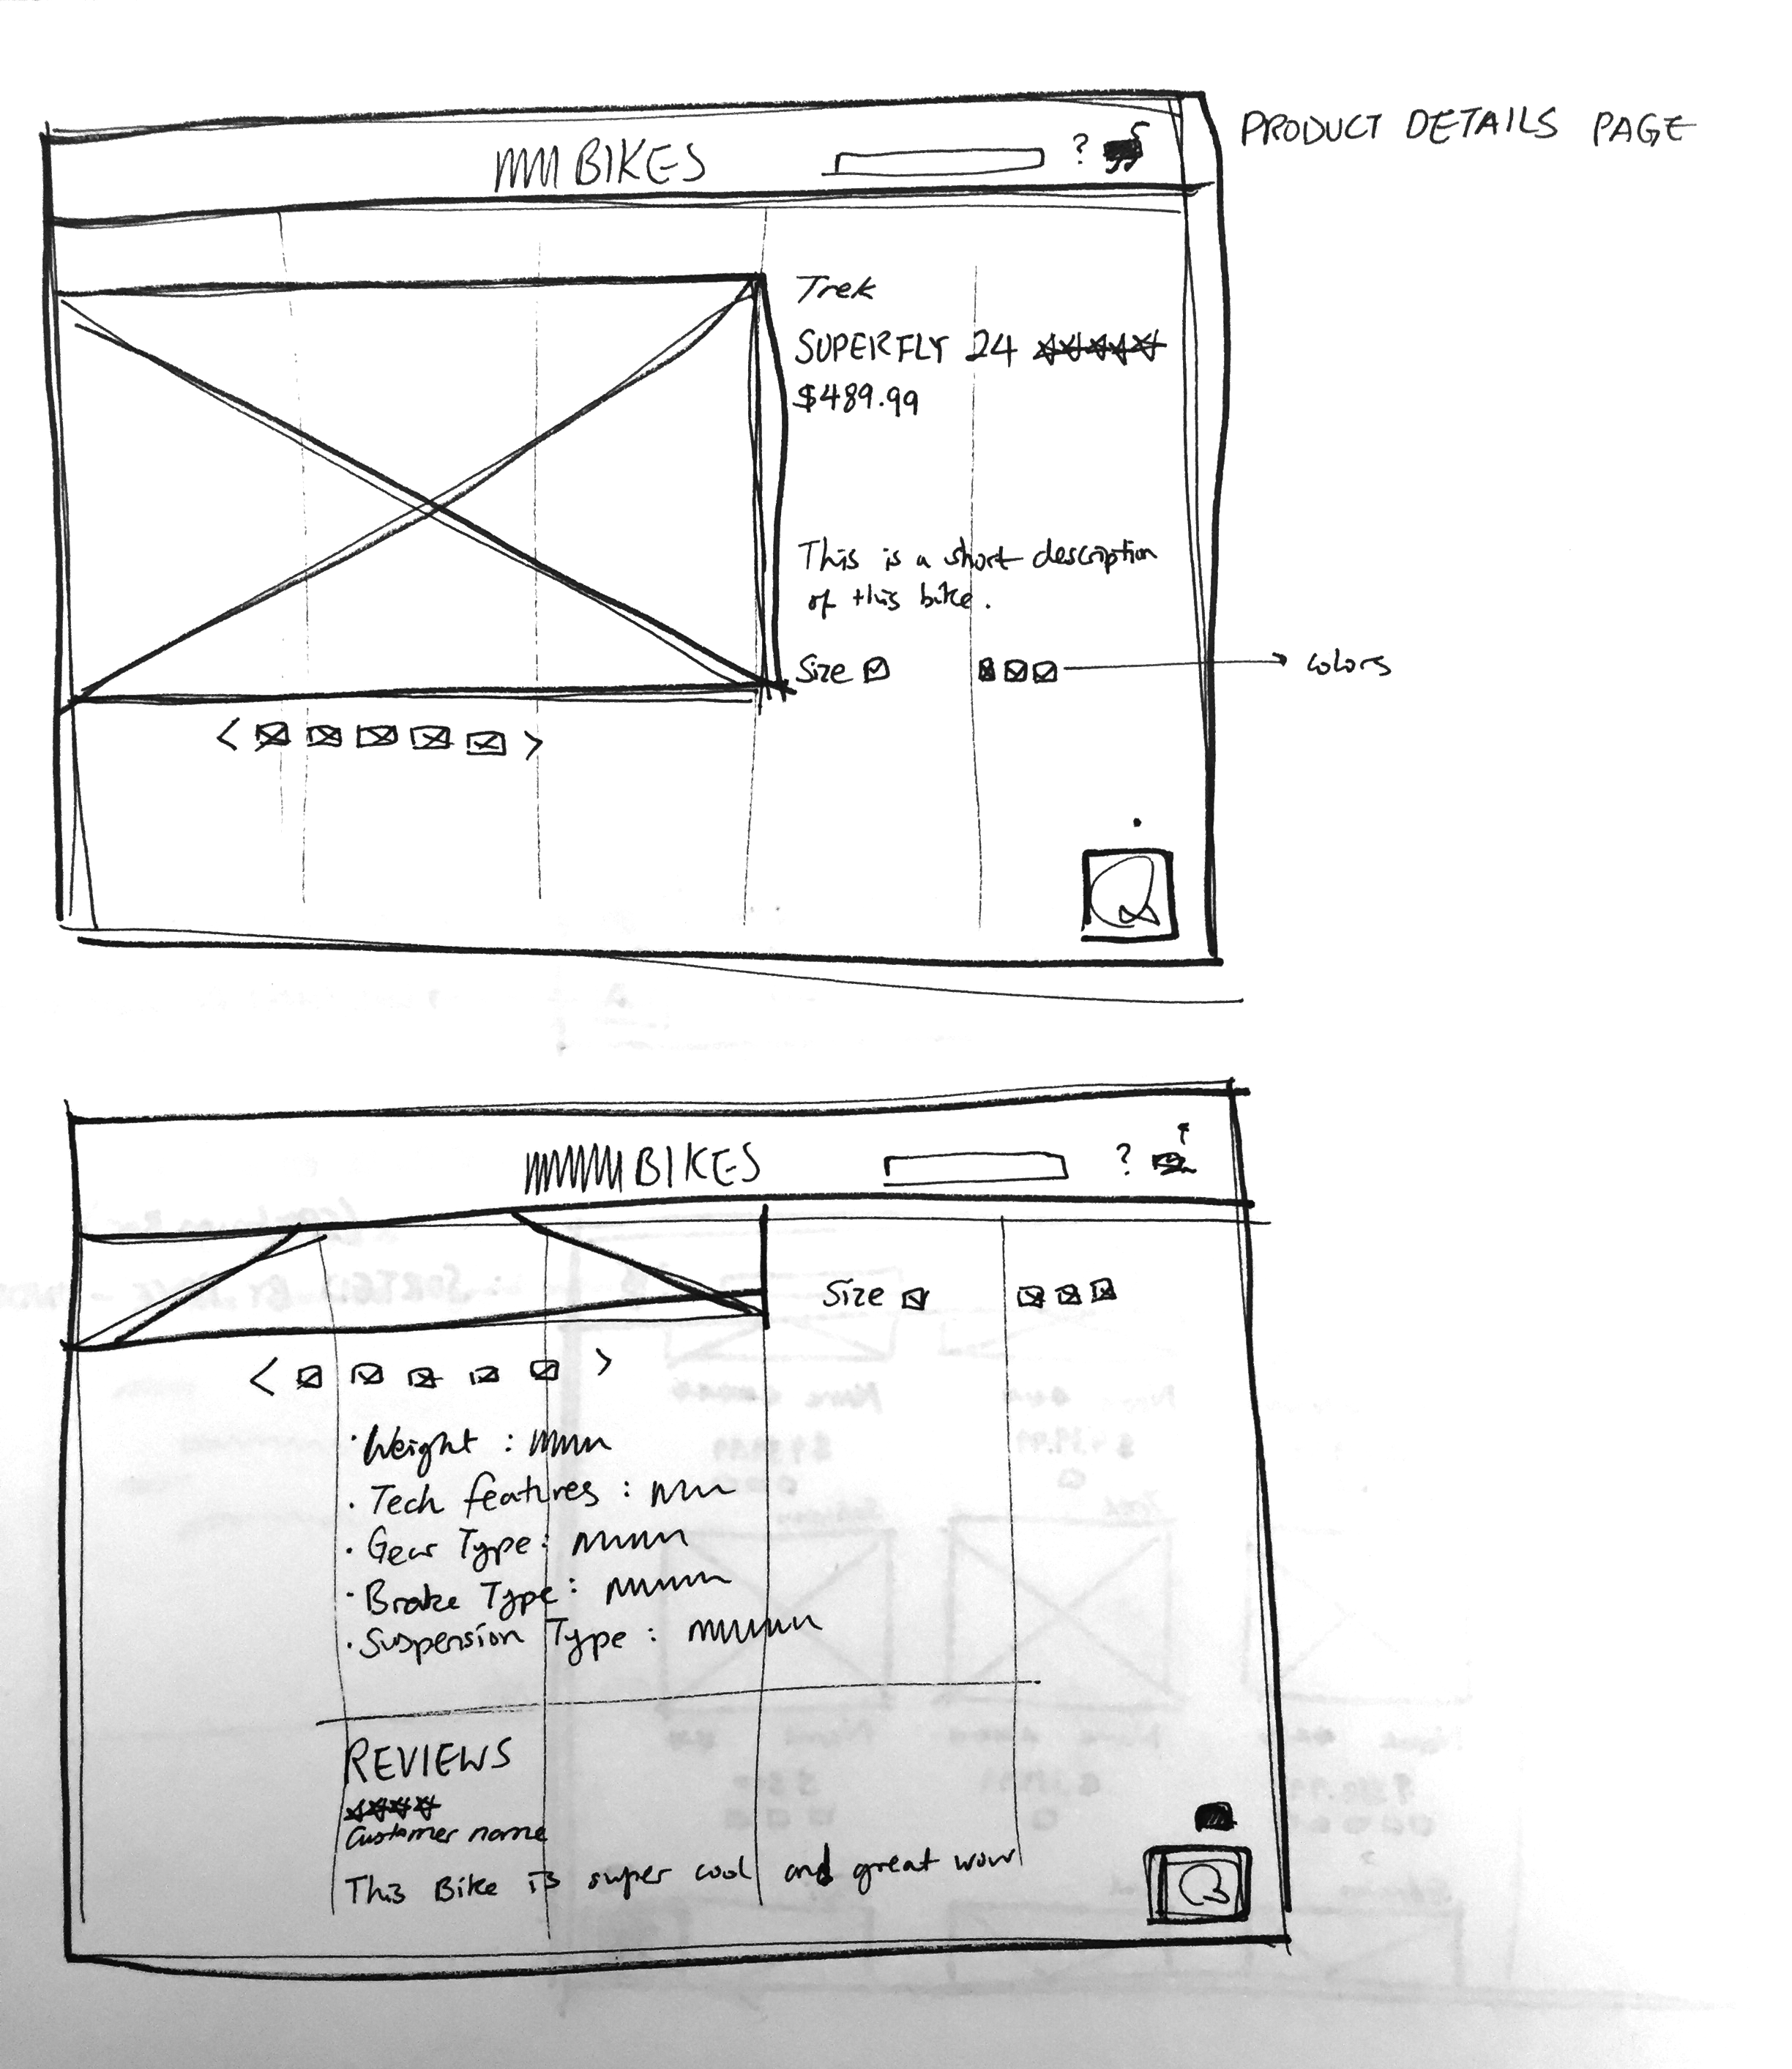 PRODUCT DETAILS PAGE
BIKES
?
Trek
SUPERFLY 24
$489.99
This is a short description
of this bike.
Size
colors
< >
BIKES
?
Size
< >
· Weight :
· Tech features :
· Gear Type :
· Brake Type :
· Suspension Type :
REVIEWS
Customer name
This Bike is super cool and great wow